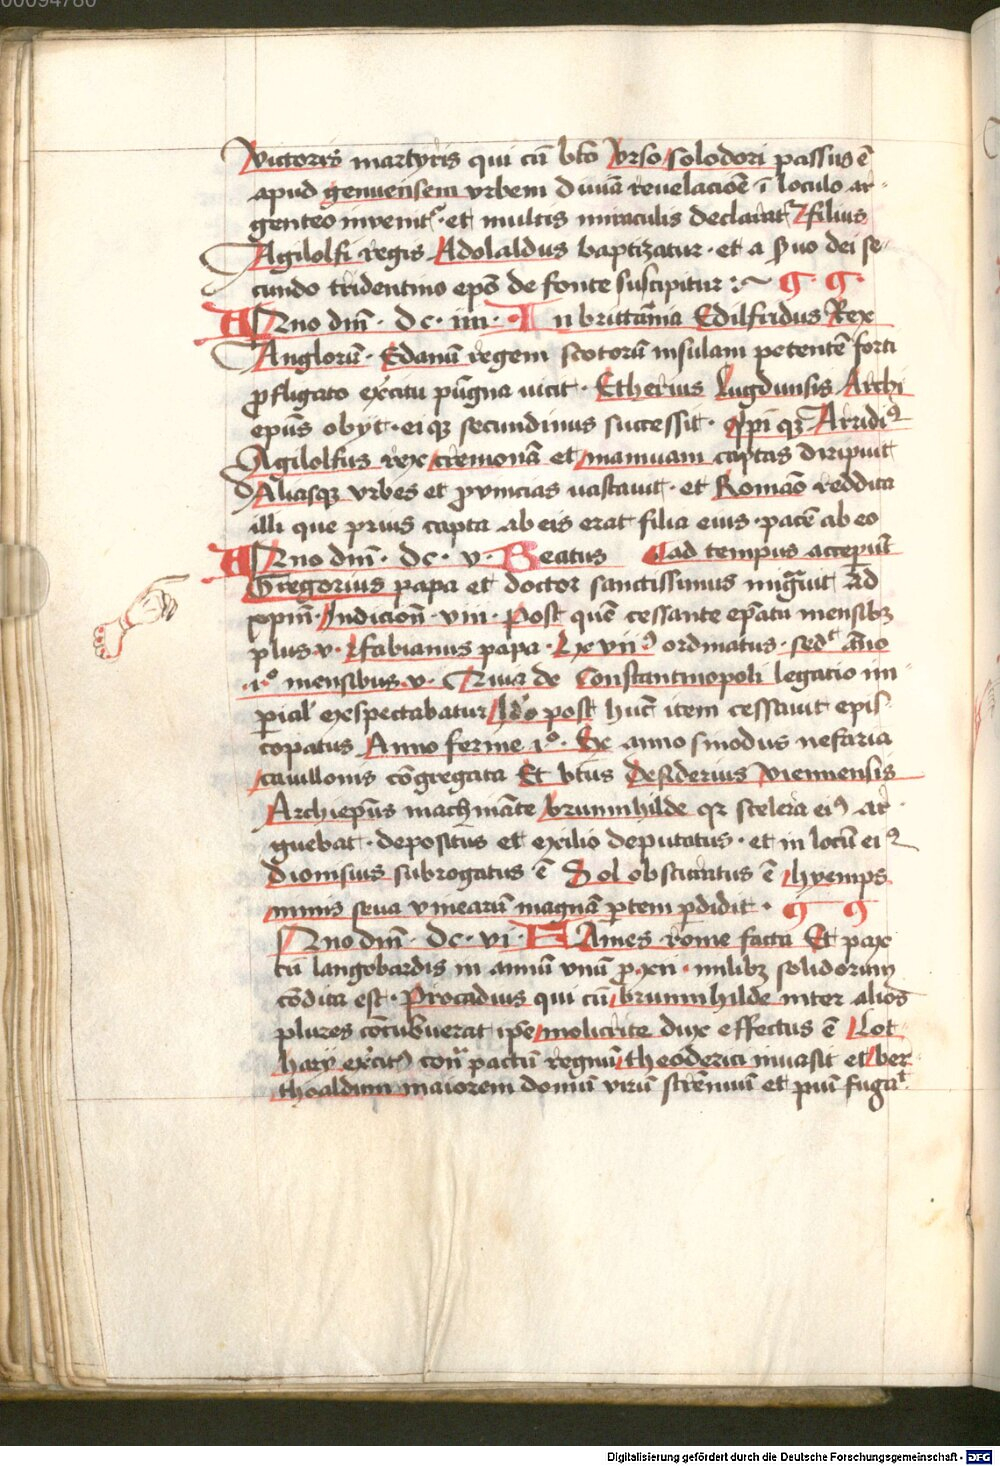 00094780
Victoris martyris qui cū bt̄o Vrso solodori passus ē
apud genuensem vrbem diuīa reuelacīoē ī loculo ar-
genteo inuenit᷑ · et multis miraculis declarat᷑ filius
Agilolfi regis Adolaldus baptizatur · et a s̄uo dei se-
cundo tridentino ep̄o de fonte suscipitur
Anno dn̄i · dc · iiii · In brittānia Edilfridus Rex
Anglorū · Edanū regem scotorū insulam petentē forti
ꝓfligato ex̄citu pūgna uicit · Etherius lugdunsis Archi
ep̄us obyt · ei qꝫ secundinus successit · Arridiꝰ
Agilolfus rex cremonā et mantuam captas diripuit
Aliasqꝫ vrbes et ꝓuincias uastauit · et Romāo reddita
illi que prius capta ab eis erat filia eius · pacē ab eo
Anno dn̄i · dc · v · Beatus ad tempus accepit
Gregorius papa et doctor sanctissimus migᷓuit ad
xp̄m · Indicioн̄ · viii · Post quē cessante ep̄atu mensibꝫ
plus · v · fabianus papa · lxviiꝰ ordinatus · sedᷓt āno
·1·º mensibus · v · Cuiꝰ de Constantinopoli legatio im
ꝑial̓ exspectabatur Ido post hūc item cessauit epis-
copatus Anno ferme 1º · Ex anno sinodus nefaria
cauillonis cōgregata Et bt̄us Desiderius viennensis
Archiep̄us machināte brunnhilde qr scelera eiꝰ ar-
guebat · depositus et exilio deputatus · et in locū eiꝰ
dionisius subrogatus ē Sol obscuratus ē hyemps
nimis seua vinearū magnā ꝑtem ꝑdidit ·
Anno dn̄i · dc · vi · Fames rome facta Et pax
cū langobardis in annū vnū ꝓ xii · milibꝫ solidorum
cōdita est · Procadius qui cū brunnhilde inter alios
plures cōcubuerat ip̄e molicrite dux effectus ē Lot
hary ex̄citꝰ con̄ pactū regnū theoderici inuasit et ber
thoaldum maiorem domū virū strēnuū et piū fugat
Digitalisierung gefördert durch die Deutsche Forschungsgemeinschaft - DFG